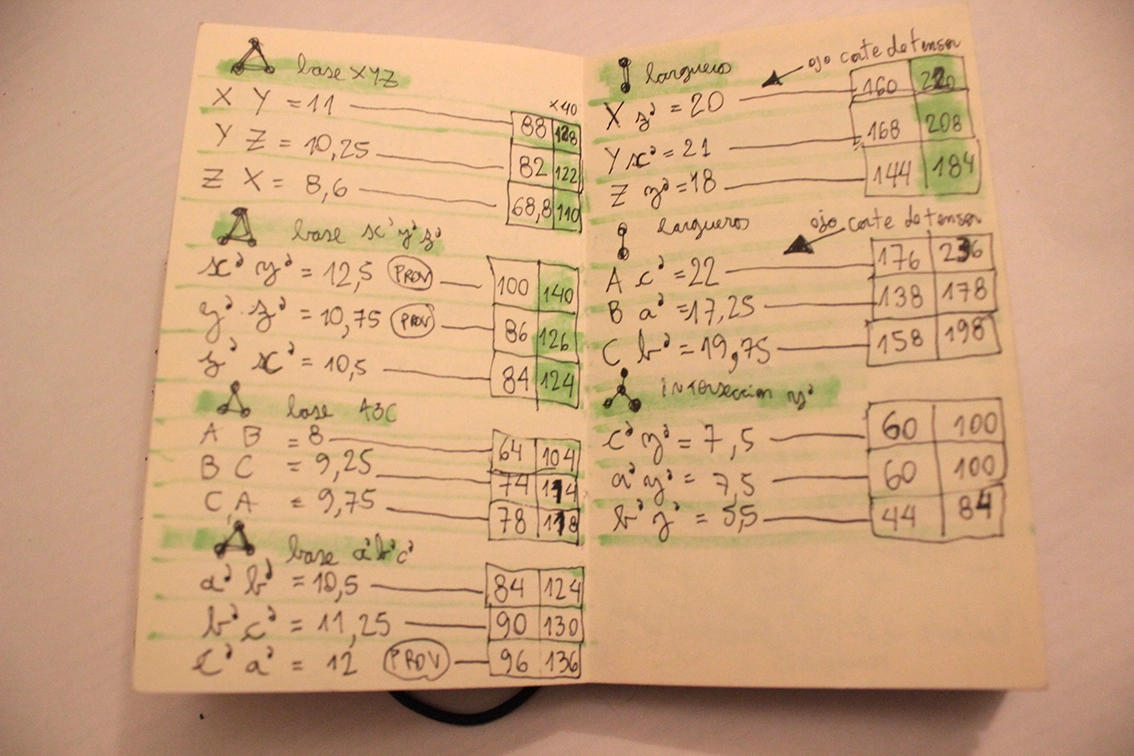 base XYZ
x40
X Y = 11 88 128
Y Z = 10,25 82 122
Z X = 8,6 68,8 110
base x' y' z'
x' y' = 12,5 PROV 100 140
y' z' = 10,75 PROV 86 126
z' x' = 10,5 84 124
base ABC
A B = 8 64 104
B C = 9,25 74 114
C A = 9,75 78 118
base a' b' c'
a' b' = 10,5 84 124
b' c' = 11,25 90 130
c' a' = 12 PROV 96 136
largueros ojo corte de tensor
X z' = 20 160 220
Y x' = 21 168 208
Z y' = 18 144 184
largueros ojo corte de tensor
A c' = 22 176 236
B a' = 17,25 138 178
C b' = 19,75 158 198
intersección y'
c' y' = 7,5 60 100
a' y' = 7,5 60 100
b' y' = 5,5 44 84